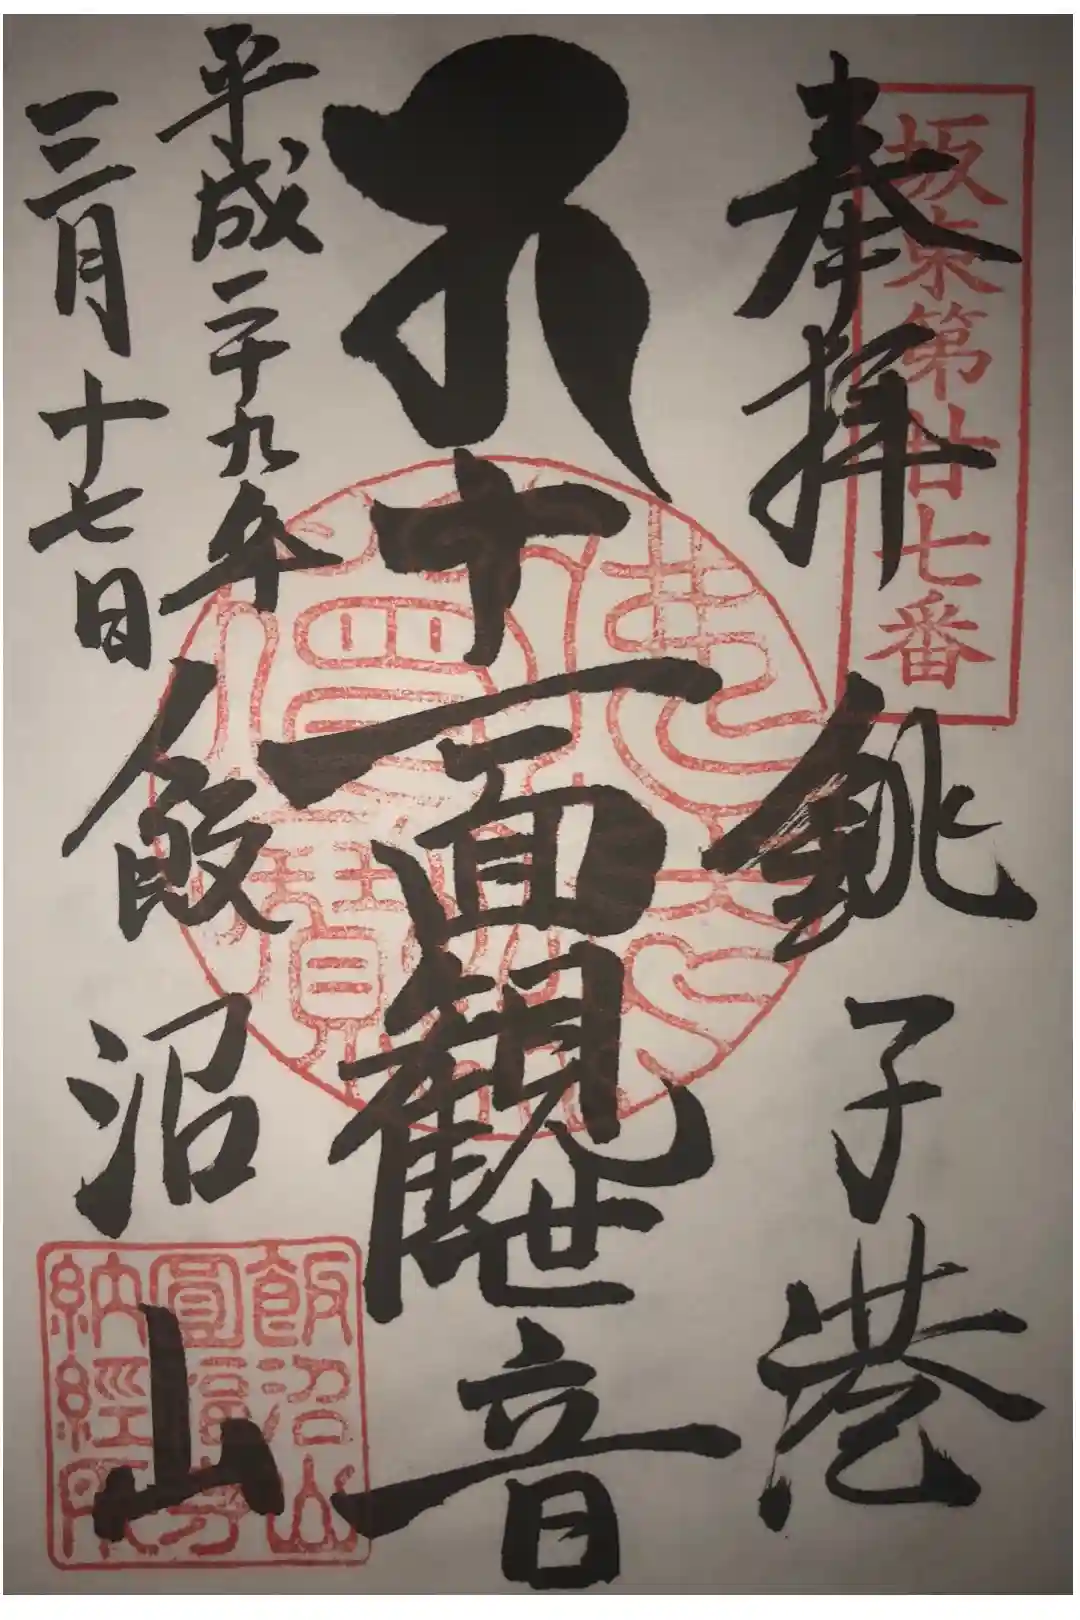 坂東第廿七番
奉拝
銚子港
十一面観世音
平成二十九年
三月十七日
飯沼山
飯沼山
圓福寺
納經所